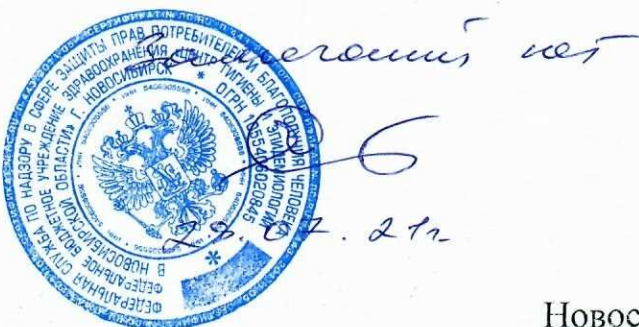 Замечаний нет
29.07.21г.
ФЕДЕРАЛЬНАЯ СЛУЖБА ПО НАДЗОРУ В СФЕРЕ ЗАЩИТЫ ПРАВ ПОТРЕБИТЕЛЕЙ И БЛАГОПОЛУЧИЯ ЧЕЛОВЕКА
ФЕДЕРАЛЬНОЕ БЮДЖЕТНОЕ УЧРЕЖДЕНИЕ ЗДРАВООХРАНЕНИЯ «ЦЕНТР ГИГИЕНЫ И ЭПИДЕМИОЛОГИИ
В НОВОСИБИРСКОЙ ОБЛАСТИ» Г. НОВОСИБИРСК * ОГРН 1055406020845
Новос